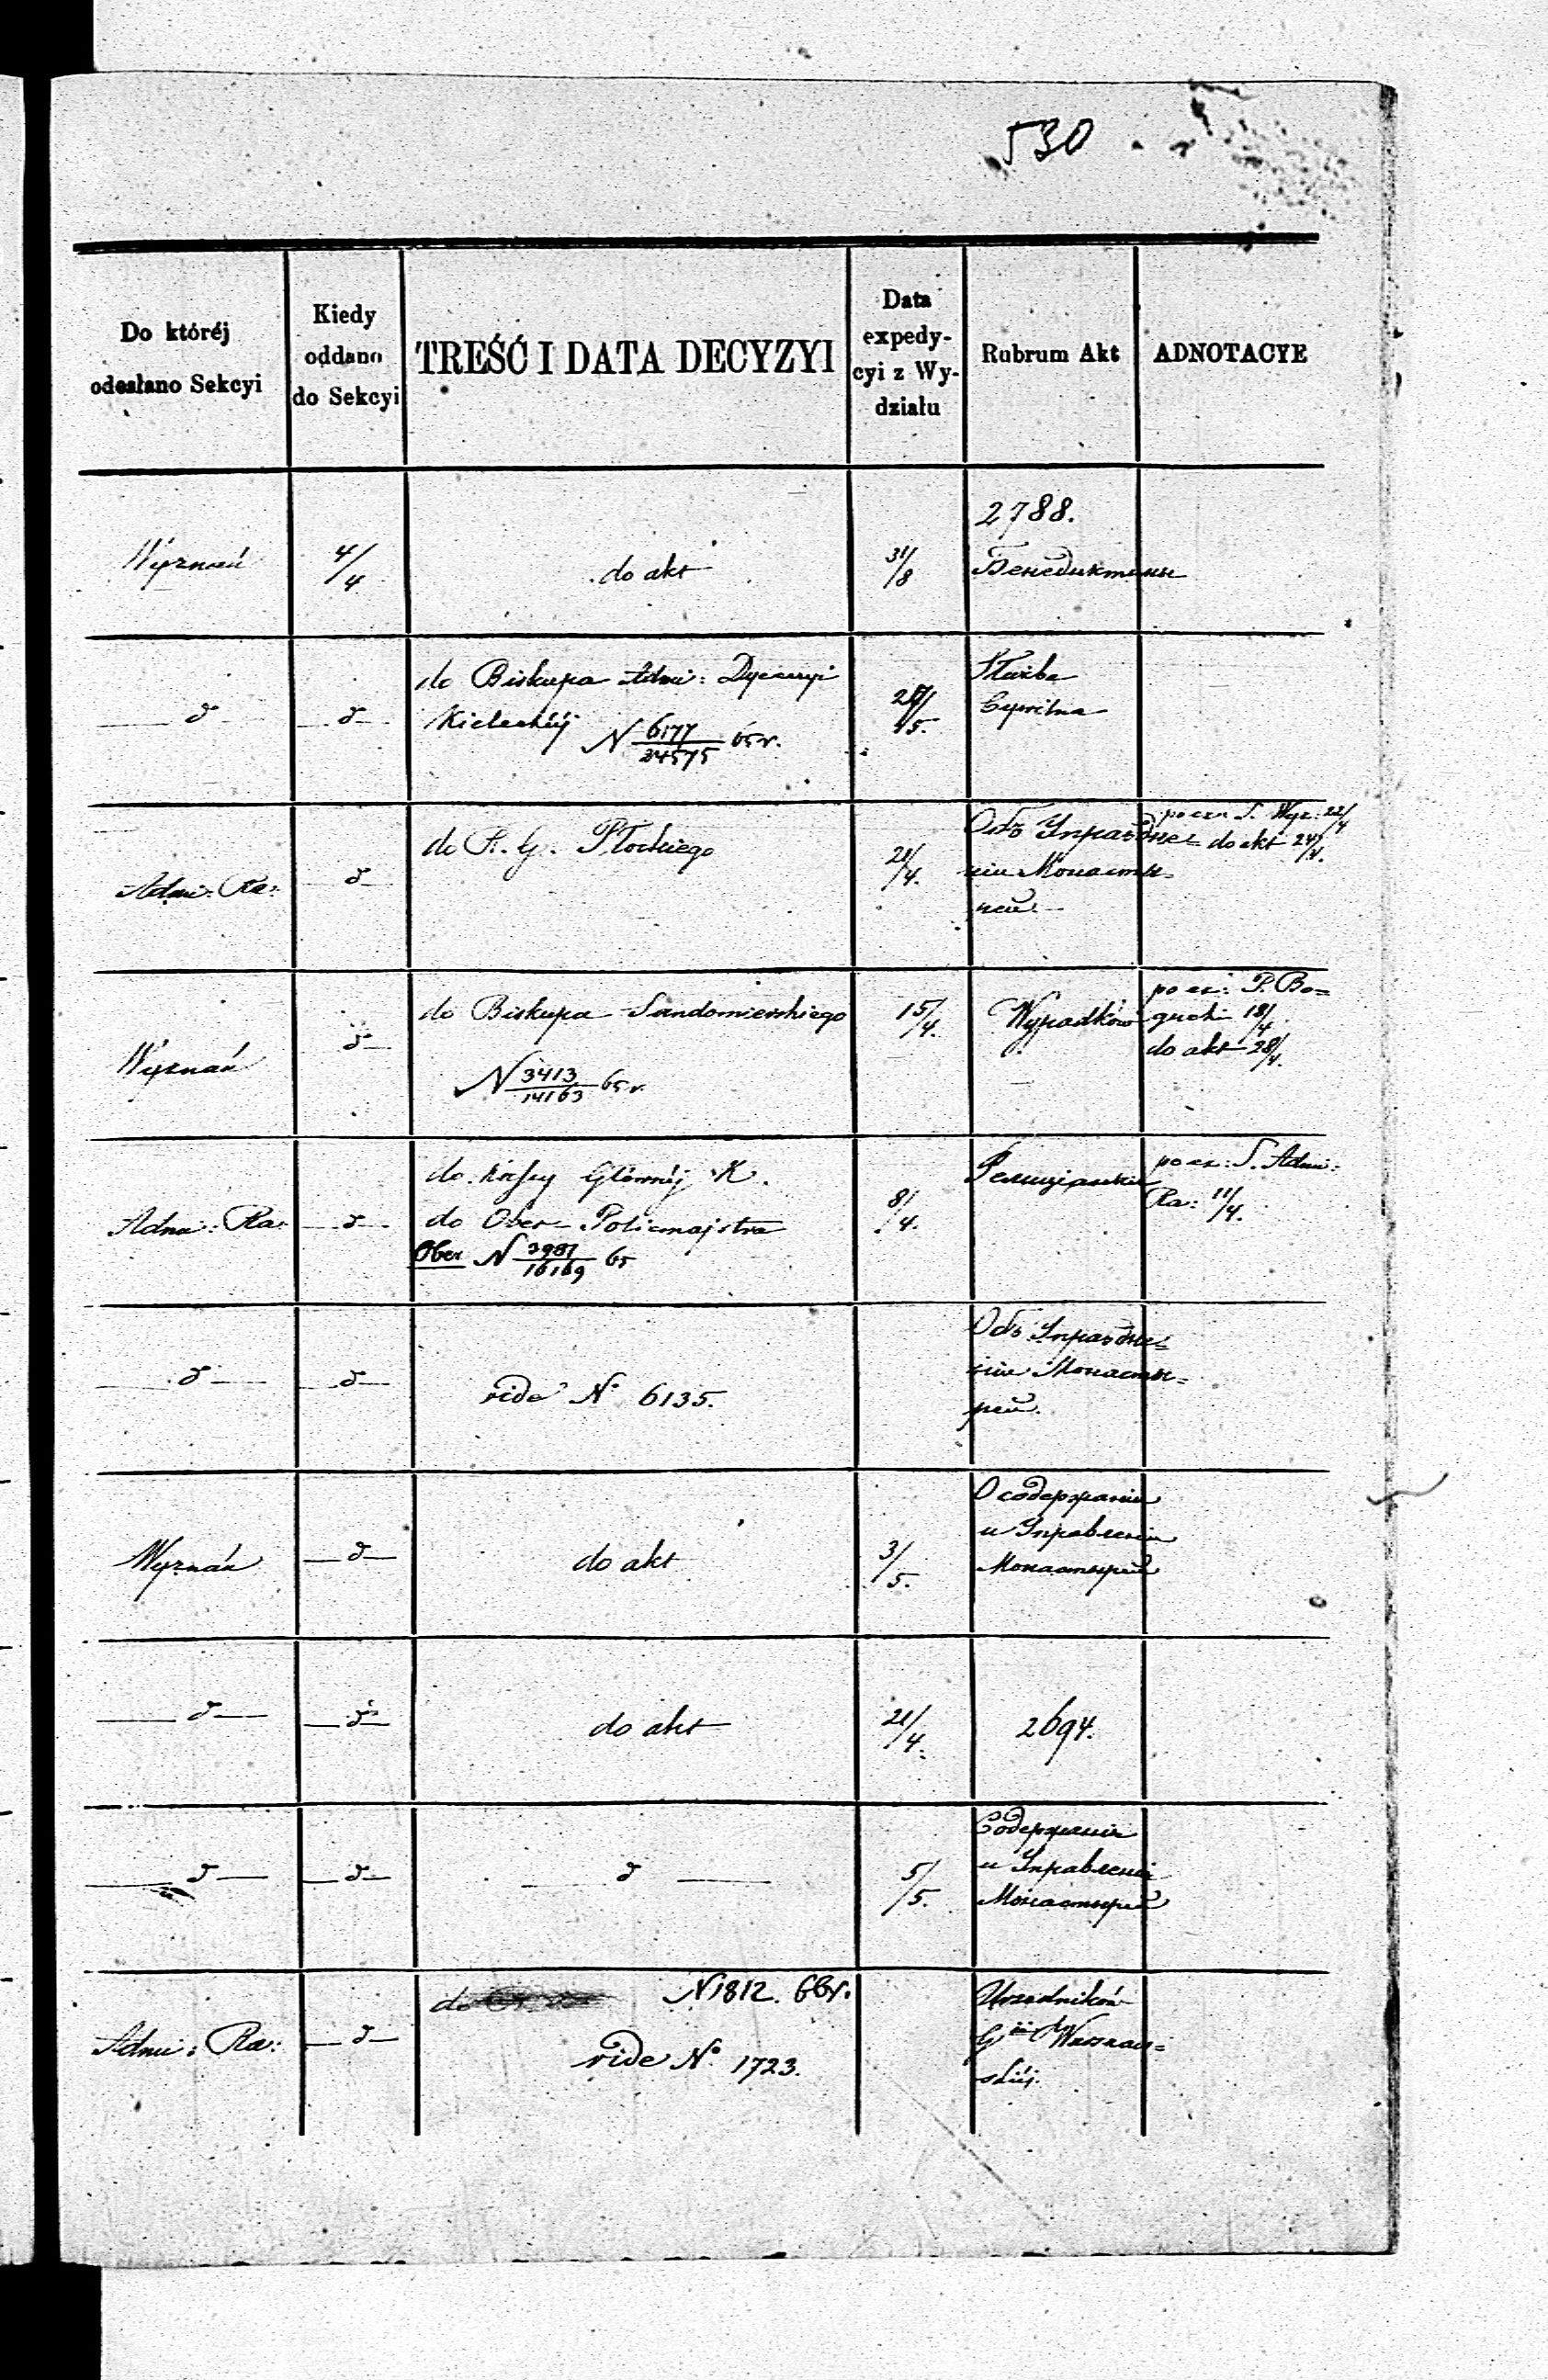 530
Do któréj
odesłano Sekcyi
Kiedy
oddano
do Sekcyi
TREŚĆ I DATA DECYZYI
Data
expedy-
cyi z Wy-
działu
Rubrum Akt
ADNOTACYE
Wyznań
4/4
do akt
31/8
2788.
Бенедиктины
d
d
do Biskupa Admi: Dyecezyi
Kieleckiéj N 6177/24575 65 r.
/5.
Służba
Cywilna
Admi: Ra:
d
do R. G. Płockiego
21/4.
Объ Упраздне=
нiи Монасты=
рей.
po ex: S. Wyz: 22/4
do akt 24/4.
Wyznań
d
do Biskupa Sandomierskiego
N 3413/14163 65 r.
15/4.
Wypadków
po ex: P. Bo=
guch 18/4.
do akt 28/4.
Admi: Ra:
d
do Kassy Głównéj K.
do Ober-Policmajstra
Ober N 3981/16169 65
8/4.
po ex: S. Admi:
Ra: 11/4.
d
d
vide N° 6135.
Объ Упраздне=
нiи Монасты=
рей.
Wyznań
d
do akt
3/5.
О содержанiи
и Управленiи
Монастырей
d
d
do akt
21/4.
2694.
d
d
d
5/5.
Содержанiи
и Управленiи
Монастырей
Admi: Ra:
d
do
N 1812. 66 r.
vide N° 1723.
Urzędników
Gii Warszaw=
skiéj.